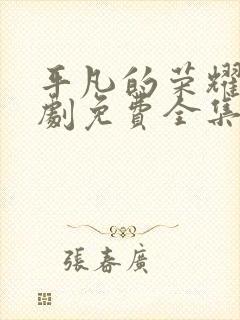 平凡的荣耀
劇免費全集
張春廣